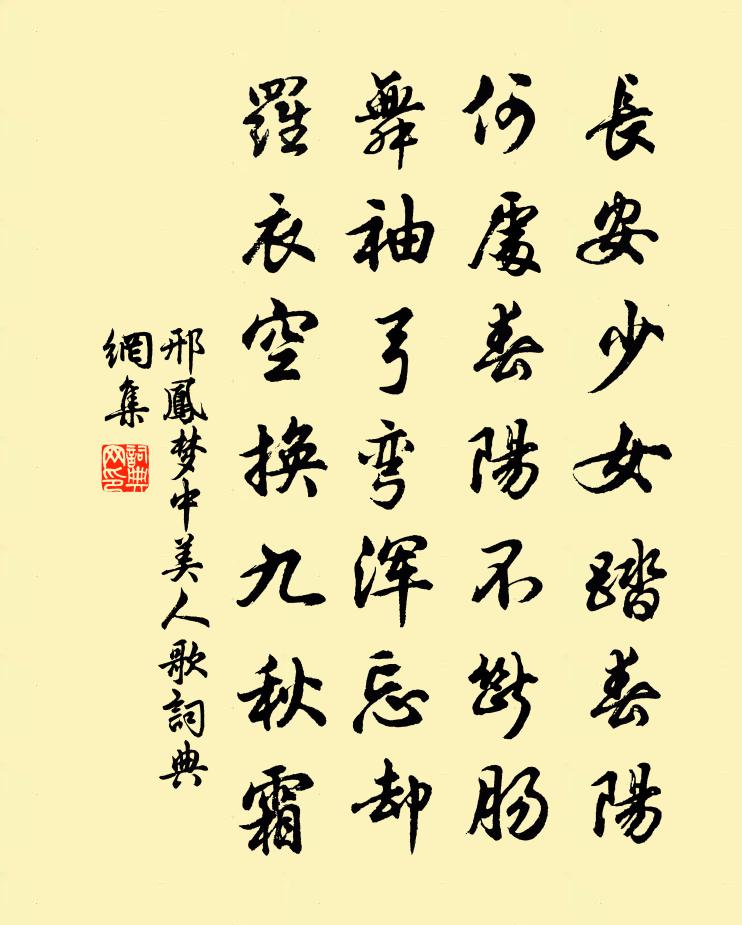 長安少女踏春陽
何處春陽不斷肠
舞袖弓弯浑忘却
羅衣空換九秋霜
邢鳳梦中美人歌詞典
網集
詞典
网印